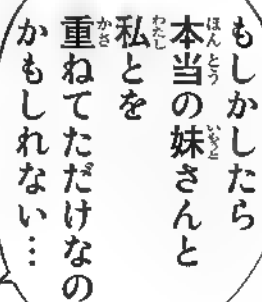 もしかしたら
本当の妹さんと
私とを
重ねてただけなの
かもしれない…